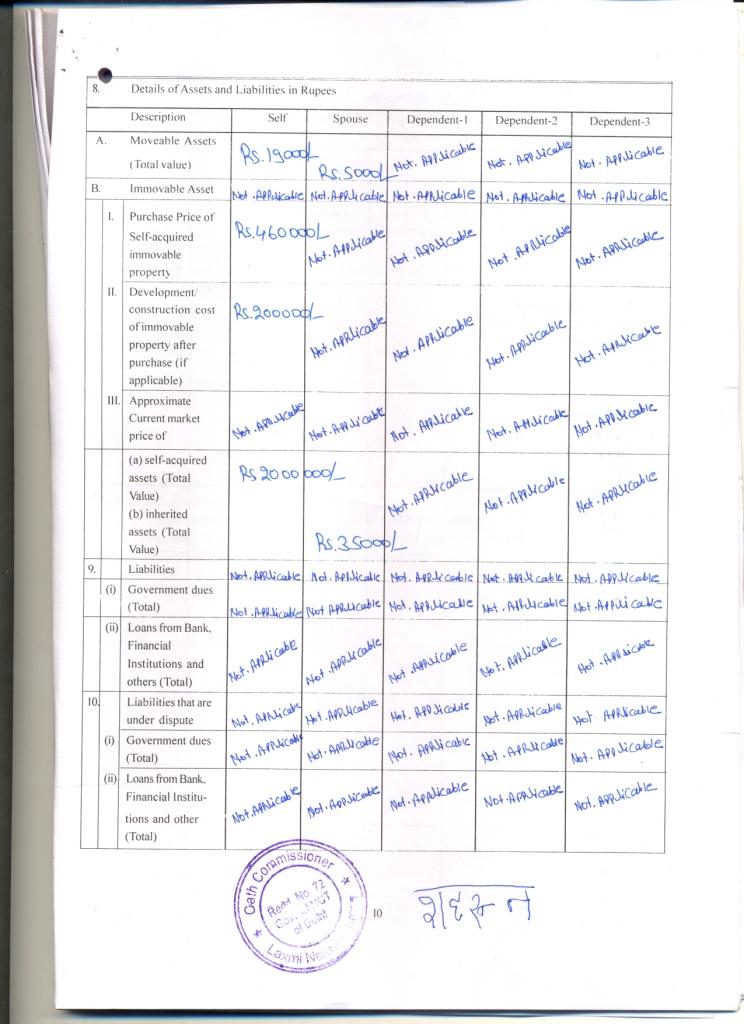 8. Details of Assets and Liabilities in Rupees
Description Self Spouse Dependent-1 Dependent-2 Dependent-3
A. Moveable Assets
(Total value) Rs.19000/- Rs.5000/- Not.Applicable Not.Applicable Not.Applicable
B. Immovable Asset Not.Applicable Not.Applicable Not.Applicable Not.Applicable Not.Applicable
I. Purchase Price of
Self-acquired
immovable
property Rs.460000/- Not.Applicable Not.Applicable Not.Applicable Not.Applicable
II. Development/
construction cost
of immovable
property after
purchase (if
applicable) Rs.200000/- Not.Applicable Not.Applicable Not.Applicable Not.Applicable
III. Approximate
Current market
price of Not.Applicable Not.Applicable Not.Applicable Not.Applicable Not.Applicable
(a) self-acquired
assets (Total
Value) Rs 2000000/- Not.Applicable Not.Applicable Not.Applicable
(b) inherited
assets (Total
Value) Rs.35000/-
9. Liabilities Not.Applicable Not.Applicable Not.Applicable Not.Applicable Not.Applicable
(i) Government dues
(Total) Not.Applicable Not Applicable Not.Applicable Not.Applicable Not.Applicable
(ii) Loans from Bank,
Financial
Institutions and
others (Total) Not.Applicable Not.Applicable Not.Applicable Not.Applicable Not.Applicable
10. Liabilities that are
under dispute Not.Applicable Not.Applicable Not.Applicable Not.Applicable Not Applicable
(i) Government dues
(Total) Not.Applicable Not.Applicable Not.Applicable Not.Applicable Not.Applicable
(ii) Loans from Bank,
Financial Institu-
tions and other
(Total) Not.Applicable Not.Applicable Not.Applicable Not.Applicable Not.Applicable
Oath Commissioner
Regd. No. 72
Govt. of NCT
of Delhi
Laxmi
10